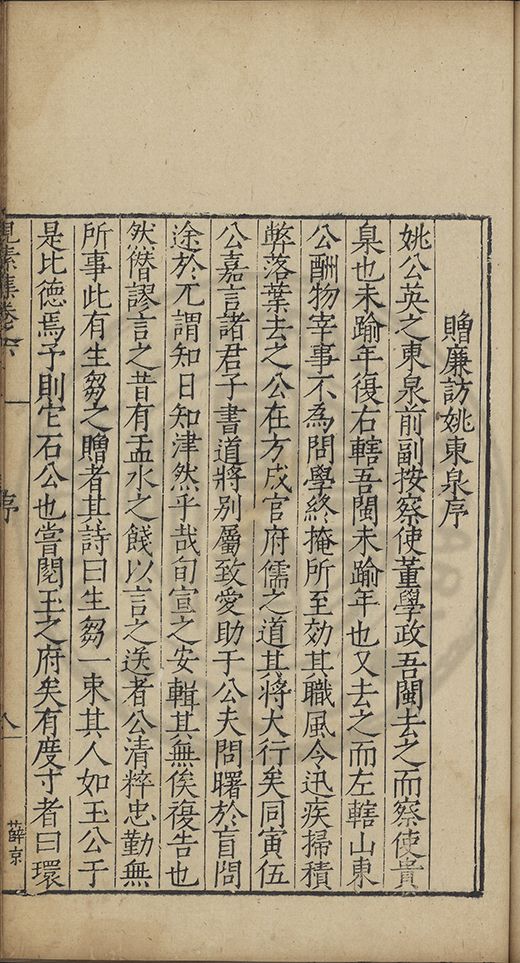 贈廉訪姚東泉序
姚公英之東泉前副按察使董學政吾閩去之而察使貴
臬也未踰年復右轄吾閩未踰年也又去之而左轄山東
公酬物宰事不為問學終掩所至効其職風令迅疾掃積
弊落葉去之公在方戍官府儒之道其將大行矣同寅伍
公嘉言諸君子書道將别屬致愛助于公夫問曙於盲問
途於兀謂知日知津然乎哉旬宣之安輯其無俟復告也
然僣謬言之昔有盂水之餞以言之送者公清粹忠勤無
所事此有生芻之贈者其詩曰生芻一束其人如玉公于
是比德焉予則它石公也嘗閱玉之府矣有度寸者曰環
見素集卷六
序
八
薛京